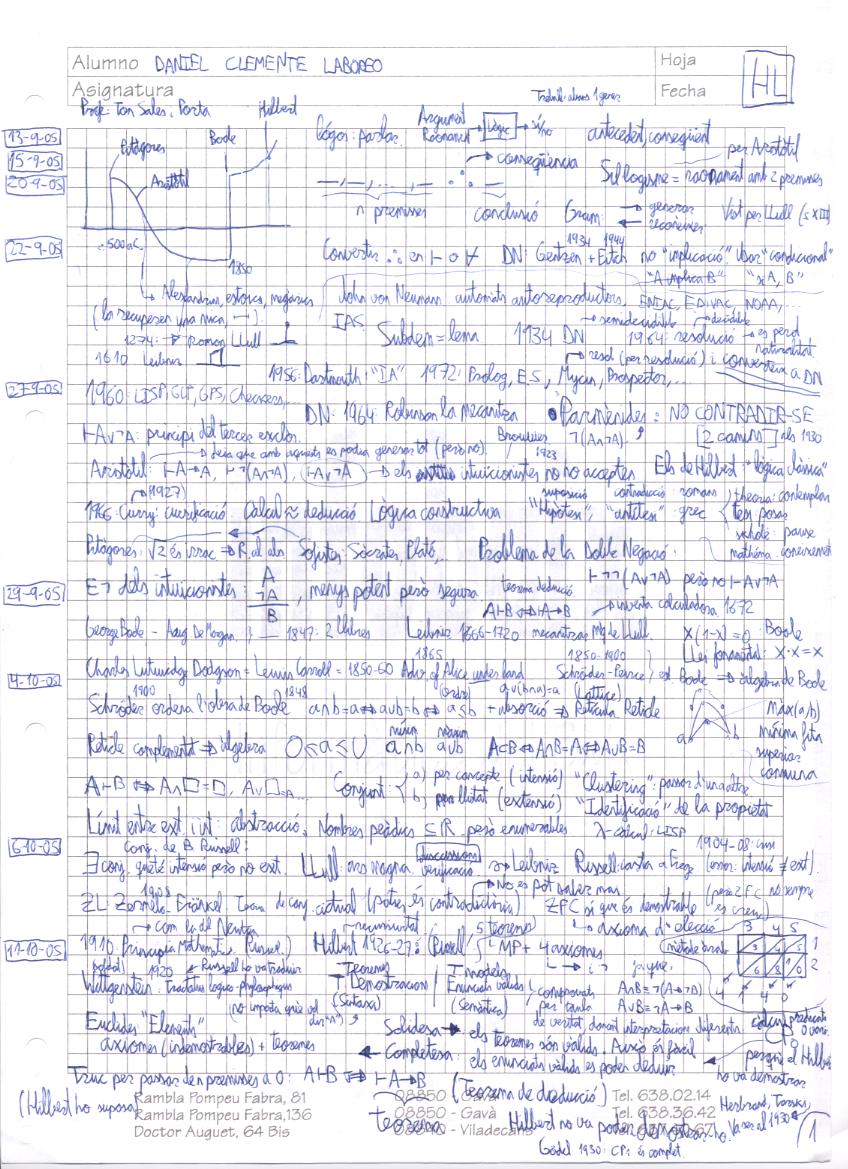 Alumno DANIEL CLEMENTE LABOREO Hoja HL
Asignatura Fecha
Prof: Ton Sales i Porta Hilbert Argument Raonament → Lògic → sí/no
13-9-05 Pitàgores Boole lógos: parlar antecedent, conseqüent
15-9-05 Aristòtil → conseqüència per Aristòtil
20-9-05 Sil·logisme = raonament amb 2 premisses
n premisses conclusió Gram: generar reconèixer Vist per Llull (s XIII)
≈500 aC 1850 1934 1944
22-9-05 Convertir ∴ en ⊢ o ∀ DN: Gentzen + Fitch no "implicació". Usar "condicional"
"A implica B" "si A, B"
↳ Alexandrins, estoics, megàrics John von Neumann: autòmats autoreproductors, ENIAC, EDIVAC, NOAA,...
IAS Subdem = lema 1934 DN → semidecidible → decidible
1964: resolució → es perd naturalitat
1274: → Ramon Llull
1610 Leibniz → resol (per resolució) i converteix a DN
1956: Dartmouth: "IA" 1972: Prolog, E.S, Mycin, Prospector,...
27-9-05 1960: LISP, GLP, GPS, Checkers,...
DN: 1964 Robinson la mecanitza • Parmènides: NO CONTRADIR-SE
⊢A∨¬A: principi del tercer exclòs. Brouwer 1923 ¬(A∧¬A) [2 camins] als 1930
→ deia que amb aquests es podia generar tot (però no).
Aristòtil: ⊢A→A, ⊢¬(A∧¬A), ⊢A∨¬A → els intuicionistes no no accepten Els de Hilbert: "lògica clàssica"
(1927) suposició contradicció: romans
1966: Curry: currificació Càlcul ≈ deducció Lògica constructiva "Hipòtesi", "antítesi": grec
theoria: contemplar
tesi: posar
scholé: pausa
mathéma: coneixement
Pitàgores: √2 és irrac ⇒ R. al als Sofistes: Sòcrates, Plató,... Problema de la Doble Negació:
29-9-05 E¬ dels intuicionistes: A ¬A B, menys potent però segura teorema deducció ⊢¬¬(A∨¬A) però no ⊢A∨¬A
A⊢B ⇔ ⊢A→B → inventa calculadora 1672
George Boole - Aug De Morgan } — 1847: 2 llibres Leibniz 1666-1720 mecanitzar Mg de Llull. X(1-X)=0 Boole
Llei fonamental: X·X=X
4-10-05 Charles Lutwidge Dodgson = Lewis Carroll = 1850-60 1865 Adv. of Alice under land 1850-1900 Schröder-Peirce } est. Boole ⇒ àlgebra de Boole
1900 1848 (ordre) a∪(b∩a)=a (lattice)
Schröder ordena l'obra de Boole a∩b=a⇔a∪b=b⇔a≤b + absorció ⇒ Reticula Reticle max(a,b)
mínima fita
superior
comuna
Reticle complementat ⇒ àlgebra 0≤a≤U mínim a∩b màxim a∪b A⊂B⇔A∩B=A⇔A∪B=B
A⊢B ⇔ A∧□=□, A∨□=□... Conjunt: a) per concepte (intensió) "Clustering": passar d'una a l'altre
b) per llistat (extensió) "Identificació" de la propietat
Límit entre ext. i int: abstracció. Nombres ⊆ℝ, però enumerables λ-càlcul: LISP
6-10-05 conj. de B Russell: discussions 1904-08: 
∃ conj. que té intensió però no ext. Llull: ars magna. verificació → Leibniz Russell: carta a Frege (error: intensió ≠ ext).
1908 → No es pot saber mai
ZF: Zermelo-Fränkel: Teoria de conj. actual (potser és contradictòria) ZFC sí que és demostrable (però ZFC no sempre es creu)
→ com la de Newton ↳ axioma d'elecció
11-10-05 1910: Principia Mathematica, Russell) Hilbert 1926-27: (Russell) 5 teoremes MP + 4 axiomes (mètode àrab) 3 4 5
1920 ← Russell ho va traduir
Wittgenstein: Tractatus Logico-Philosophicus T. Demostració (Sintaxi) T. models Enunciats vàlids (Semàntica) comprovats per taula de veritat, donant interpretacions diferents. A∧B≡¬(A→¬B)
A∨B≡¬A→B
(no importa què vol dir "A")
Euclides "Elements" axiomes (indemostrables) + teoremes
Solidesa → els teoremes són vàlids. Això és fàcil càlcul predicats
← Completesa: els enunciats vàlids es poden deduir. perquè Hilbert
ho va demostrar
Truc per passar de n premisses a 0: A⊢B ⇔ ⊢A→B (Teorema de deducció) Herbrand, Tarski,
(Hilbert ho suposa) teorema Hilbert no va poder demostrar-ho. Va ser al 1930
Gödel 1930: CP1 és complet. 1
Rambla Pompeu Fabra, 81 08850 Tel. 638.02.14
Rambla Pompeu Fabra,136 08850 - Gavà Tel. 638.36.42
Doctor Auguet, 64 Bis 08840 - Viladecans